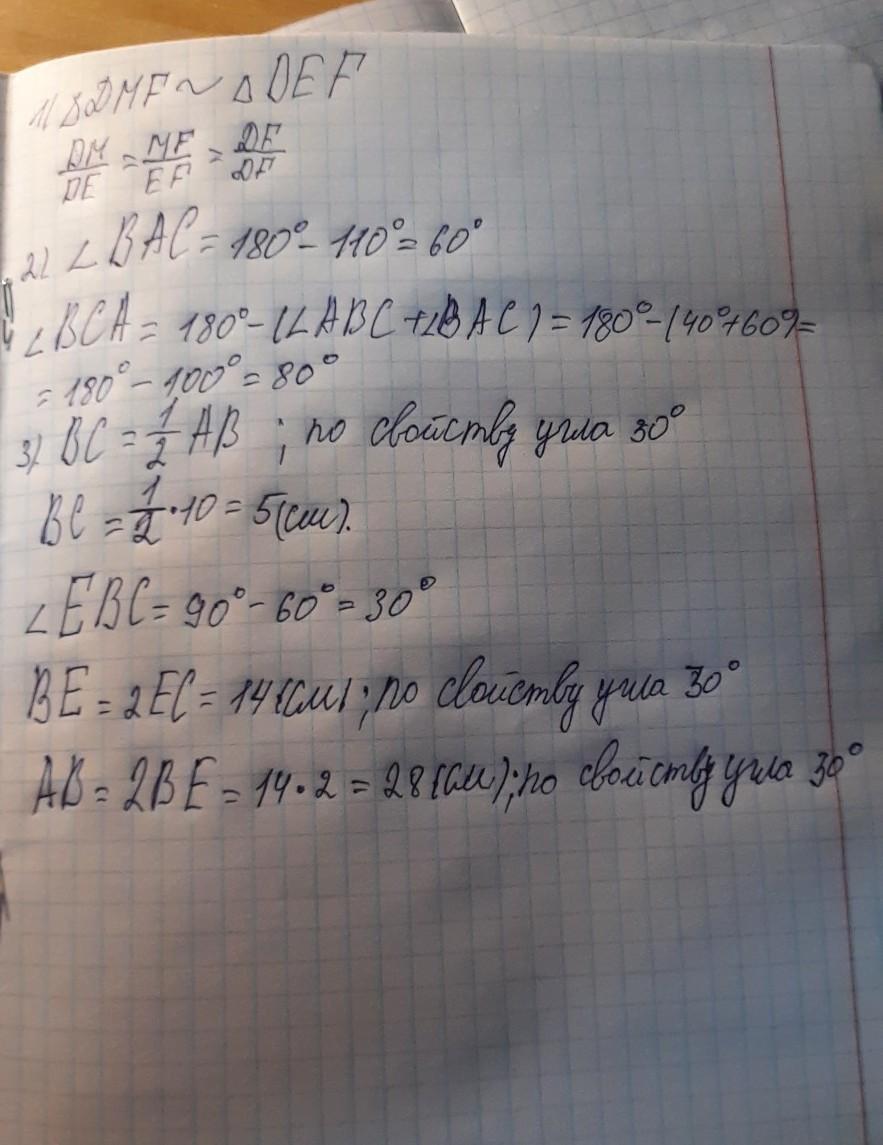 1) △DMF ~ △DEF
DM/DE = MF/EF = DF/DF
2) ∠BAC = 180° - 110° = 60°
∠BCA = 180° - (∠ABC + ∠BAC) = 180° - (40° + 60°) =
= 180° - 100° = 80°
3) BC = 1/2 AB ; по свойству угла 30°
BC = 1/2 · 10 = 5(см).
∠EBC = 90° - 60° = 30°
BE = 2EC = 14(см) ; по свойству угла 30°
AB = 2BE = 14 · 2 = 28(см) ; по свойству угла 30°